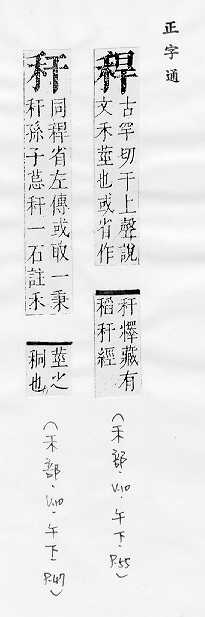 正字通
稈
古罕切干上聲說
文禾莖也或省作
秆釋藏有
稻秆經
（禾部·V.10·午下·P.55）
秆
同稈省左傳或取一秉
秆孫子𦮼秆一石註禾
莖也
稠也
（禾部·V.10·午下·P.47）